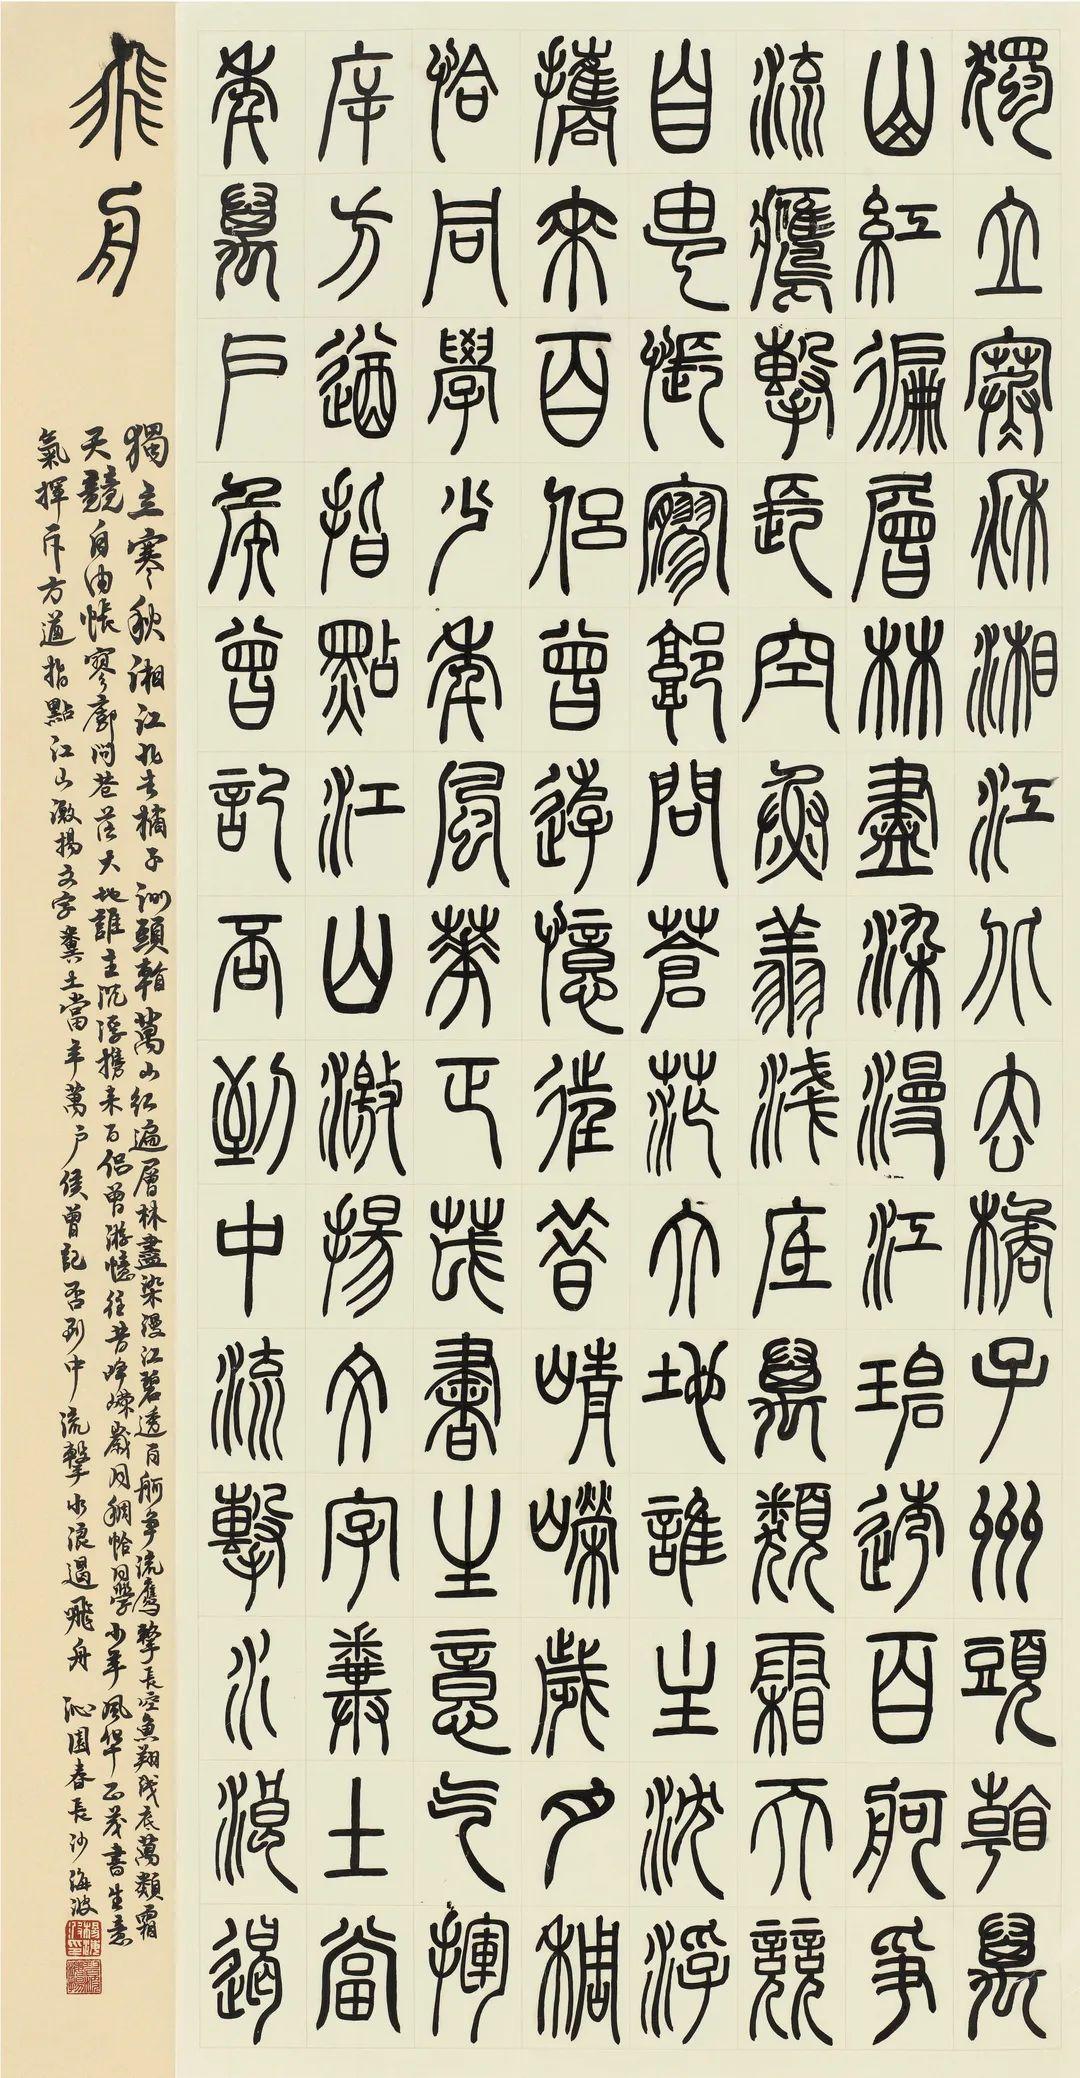 獨立寒秋湘江北去橘子州頭看萬
山紅徧層林盡染漫江碧透百舸爭
流鷹擊長空魚翔淺底萬類霜天競
自由悵寥郭問蒼茫大地誰主沈浮
攜來百侶曾遊憶往昔崝嶸歲月稠
恰同學少年風華正茂書生意气揮
斥方遒指點江山激揚文字糞土當
年萬戶侯曾記否到中流擊水浪遏
飛舟
獨立寒秋湘江北去橘子洲頭看萬山紅遍層林盡染漫江碧透百舸爭流鷹擊長空魚翔淺底萬類霜
天競自由悵寥廓問蒼茫大地誰主沉浮攜来百侶曾游憶往昔崢嶸歲月稠恰同學少年風華正茂書生意
氣揮斥方遒指點江山激揚文字糞土當年萬户侯曾記否到中流擊水浪遏飛舟 沁園春長沙 海波